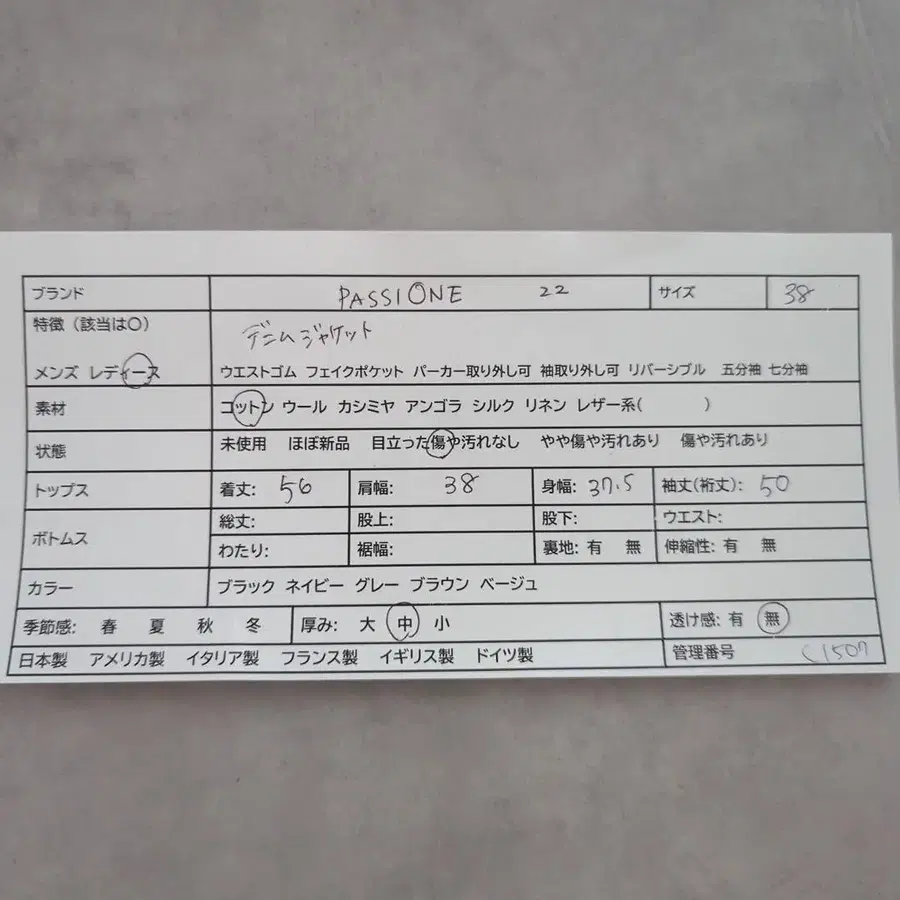 ブランド PASSIONE 22 サイズ 38
特徴(該当は〇) デニムジャケット
メンズ レディース ウエストゴム フェイクポケット パーカー取り外し可 袖取り外し可 リバーシブル 五分袖 七分袖
素材 コットン ウール カシミヤ アンゴラ シルク リネン レザー系( )
状態 未使用 ほぼ新品 目立った傷や汚れなし やや傷や汚れあり 傷や汚れあり
トップス 着丈: 56 肩幅: 38 身幅: 37.5 袖丈(裄丈): 50
ボトムス 総丈: 股上: 股下: ウエスト:
わたり: 裾幅: 裏地: 有 無 伸縮性: 有 無
カラー ブラック ネイビー グレー ブラウン ベージュ
季節感: 春 夏 秋 冬 厚み: 大 中 小 透け感: 有 無
日本製 アメリカ製 イタリア製 フランス製 イギリス製 ドイツ製 管理番号 C1507